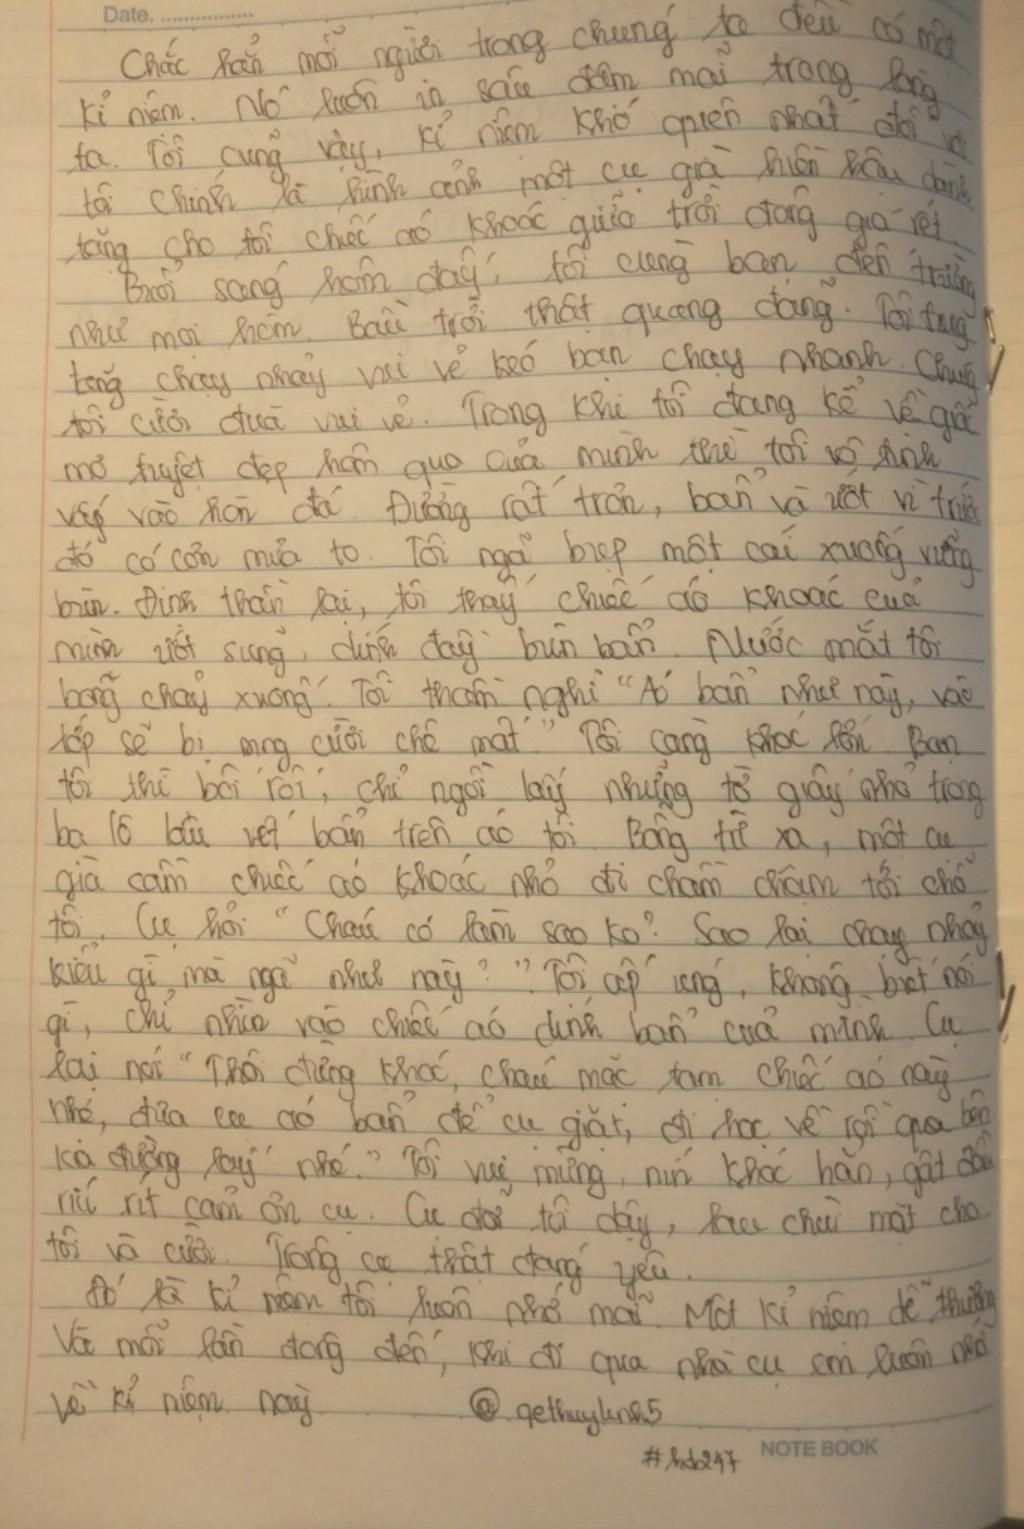 Date. ................
Chắc hẳn mỗi người trong chúng ta đều có một
kỉ niệm. Nó luôn in sâu đậm mãi trong lòng
ta. Tôi cũng vậy, kỉ niệm khó quên nhất đối với
tôi chính là hình ảnh một cụ già hiền hậu dành
tặng cho tôi chiếc áo khoác giữa trời đông giá rét.
Buổi sáng hôm đấy, tôi cùng bạn đến trường
như mọi hôm. Bầu trời thật quang đãng. Tôi tung
tăng chạy nhảy vui vẻ kéo bạn chạy nhanh. Chúng
tôi cười đùa vui vẻ. Trong khi tôi đang kể về giấc
mơ tuyệt đẹp hôm qua của mình thì tôi vô tình
vấp vào hòn đá. Đường rất trơn, bẩn và ướt vì trước
đó có cơn mưa to. Tôi ngã bịch một cái xuống vũng
bùn. Định thần lại, tôi thấy chiếc áo khoác của
mình ướt sũng, dính đầy bùn bẩn. Nước mắt tôi
bỗng chảy xuống. Tôi thầm nghĩ "Áo bẩn như này, vào
lớp sẽ bị mng cười chê mất." Tôi càng khóc lớn. Bạn
tôi thì bối rối, chỉ ngồi lấy những tờ giấy nhỏ trong
ba lô lau vết bẩn trên áo tôi. Bỗng từ xa, một cụ
già cầm chiếc áo khoác nhỏ đi chầm chậm tới chỗ
tôi. Cụ hỏi "Cháu có làm sao ko? Sao lại chạy nhảy
kiểu gì mà ngã như này?" Tôi ấp úng, không biết nói
gì, chỉ nhìn vào chiếc áo dính bẩn của mình. Cụ
lại nói "Thôi đừng khóc, cháu mặc tạm chiếc áo này
nhé, đưa cụ áo bẩn để cụ giặt, đi học về rồi qua bên
kia đường lấy nhé." Tôi vui mừng, nín khóc hẳn, gật đầu
ríu rít cảm ơn cụ. Cụ đỡ tôi dậy, lau chùi mặt cho
tôi và cười. Trông cụ thật đáng yêu.
Đó là kỉ niệm tôi luôn nhớ mãi. Một kỉ niệm dễ thương
Và mỗi lần đông đến, khi đi qua nhà cụ em luôn nhớ
về kỉ niệm này
@ qethuylinh5
#hdo247
NOTE BOOK